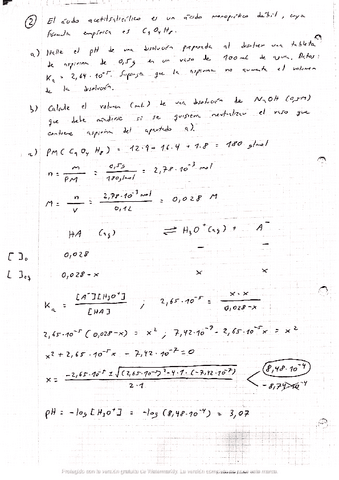 ② El ácido acetilsalicílico es un ácido monoprótico débil, cuya
fórmula empírica es C₉O₄H₈.
a) Halle el pH de una disolución preparada al disolver una tableta
de aspirina de 0,5g en un vaso de 100mL de agua. Datos:
Ka = 2,64·10⁻⁵. Suponga que la aspirina no aumenta el volumen
de la disolución.
b) Calcule el volumen (mL) de una disolución de NaOH (0,5M)
que debe añadirse si se quisiera neutralizar el vaso que
contiene aspirina del apartado a).
a) PM(C₉O₄H₈) = 12·9 + 16·4 + 1·8 = 180 g/mol
n = m/PM = 0,5g/180g/mol = 2,78·10⁻³ mol
M = n/V = 2,78·10⁻³ mol/0,1L = 0,028 M
HA (aq) ⇌ H₃O⁺(aq) + A⁻
[ ]₀ 0,028 - -
[ ]eq 0,028-x x x
Ka = [A⁻][H₃O⁺]/[HA] ; 2,65·10⁻⁵ = x·x/0,028-x
2,65·10⁻⁵(0,028-x) = x² ; 7,42·10⁻⁷ - 2,65·10⁻⁵x = x²
x² + 2,65·10⁻⁵x - 7,42·10⁻⁷ = 0
x = -2,65·10⁻⁵ ± √((2,65·10⁻⁵)² - 4·1·(-7,42·10⁻⁷))/2·1 < 8,48·10⁻⁴
-8,74·10⁻⁴
pH = -log[H₃O⁺] = -log(8,48·10⁻⁴) = 3,07